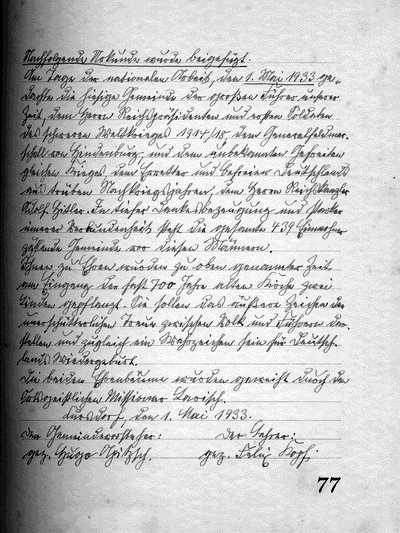 Nachfolgende Urkunde wurde beigefügt.
Am Tage der nationalen Arbeit, dem 1. Mai 1933 ge-
dachte die hiesige Gemeinde der großen Führer unserer
Zeit, dem Herrn Reichspräsidenten und ersten Soldaten
des schweren Weltkrieges 1914/18 dem Generalfeldmar-
schall von Hindenburg und dem unbekannten Gefreiten
gleichen Krieges, dem Erretter und Befreier Deutschlands
aus trüben Nachkriegsjahren, dem Herrn Reichskanzler
Adolf Hitler. In dieser Dankesbezeugung und starker
innerer Verbundenheit steht die gesamte 439 Einwohner
zählende Gemeinde vor diesen Männern.
Ihnen zu Ehren wurden zu oben genannter Zeit
am Eingang der fast 700 Jahre alten Kirche zwei
Linden gepflanzt. Sie sollen das äußere Zeichen der
unerschütterlichen Treue zwischen Volk und Führern dar-
stellen und zugleich ein Wahrzeichen sein für Deutsch-
lands Wiedergeburt.
Die beiden Ehrenbäume wurden geweiht durch den
Ortsgeistlichen Missionar
den 1. Mai 1933.
Der Gemeindevorsteher: Der Lehrer:
gez. Hugo gez. Felix Kopf.
77